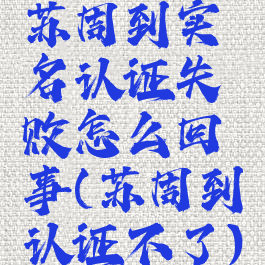 苏周到实
名认证失
败怎么回
事(苏周到
认证不了)